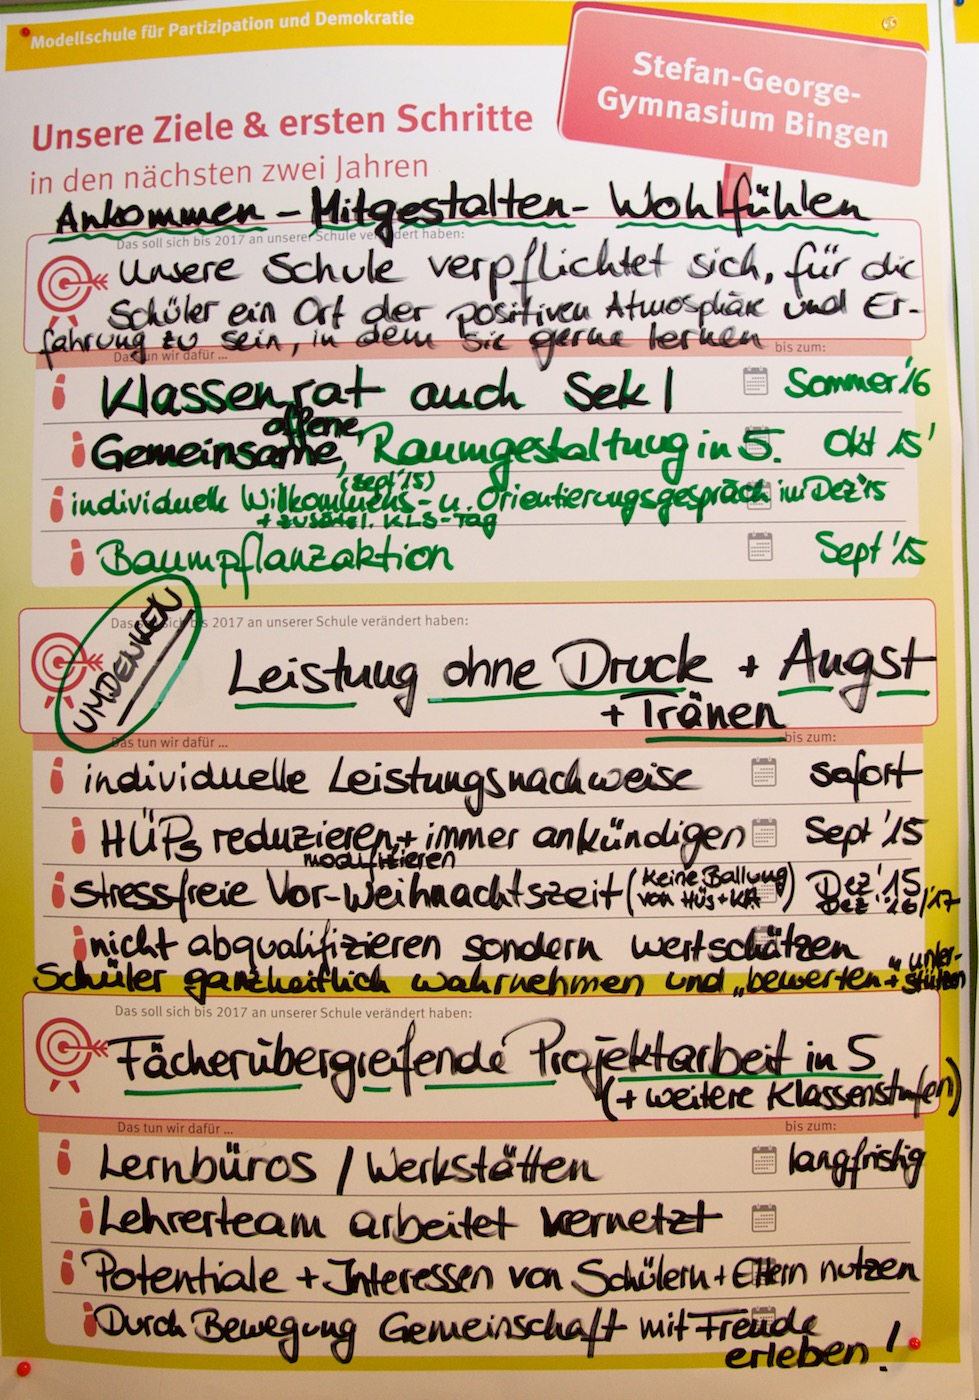 Modellschule für Partizipation und Demokratie
Stefan-George-
Gymnasium Bingen
Unsere Ziele & ersten Schritte
in den nächsten zwei Jahren
Ankommen - Mitgestalten - Wohlfühlen
Das soll sich bis 2017 an unserer Schule verändert haben:
Unsere Schule verpflichtet sich, für die
Schüler ein Ort der positiven Atmosphäre und Er-
fahrung zu sein, in dem sie gerne lernen
Das tun wir dafür ... bis zum:
Klassenrat auch Sek I Sommer '16
offene
Gemeinsame, Raumgestaltung in 5. Okt 15'
(Sept '15)
individuelle Willkommens- u. Orientierungsgespräch im Dez '15
+ zusätzl. KLS-Tag
Baumpflanzaktion Sept '15
UMDENKEN
Das soll sich bis 2017 an unserer Schule verändert haben:
Leistung ohne Druck + Angst
+ Tränen
Das tun wir dafür ... bis zum:
individuelle Leistungsnachweise sofort
HÜPs reduzieren + immer ankündigen Sept '15
modifizieren
stressfreie Vor-Weihnachtszeit (Keine Ballung von HÜs + KA) Dez '15
Dez '16/'17
nicht abqualifizieren sondern wertschätzen
Schüler ganzheitlich wahrnehmen und „bewerten" + unter-
stützen
Das soll sich bis 2017 an unserer Schule verändert haben:
Fächerübergreifende Projektarbeit in 5
(+ weitere Klassenstufen)
Das tun wir dafür ... bis zum:
Lernbüros / Werkstätten langfristig
Lehrerteam arbeitet vernetzt
Potentiale + Interessen von Schülern + Eltern nutzen
Durch Bewegung Gemeinschaft mit Freude
erleben!